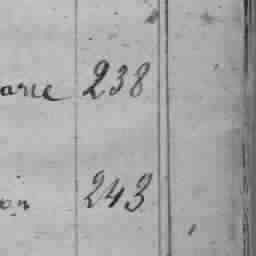 arie 238
on 243